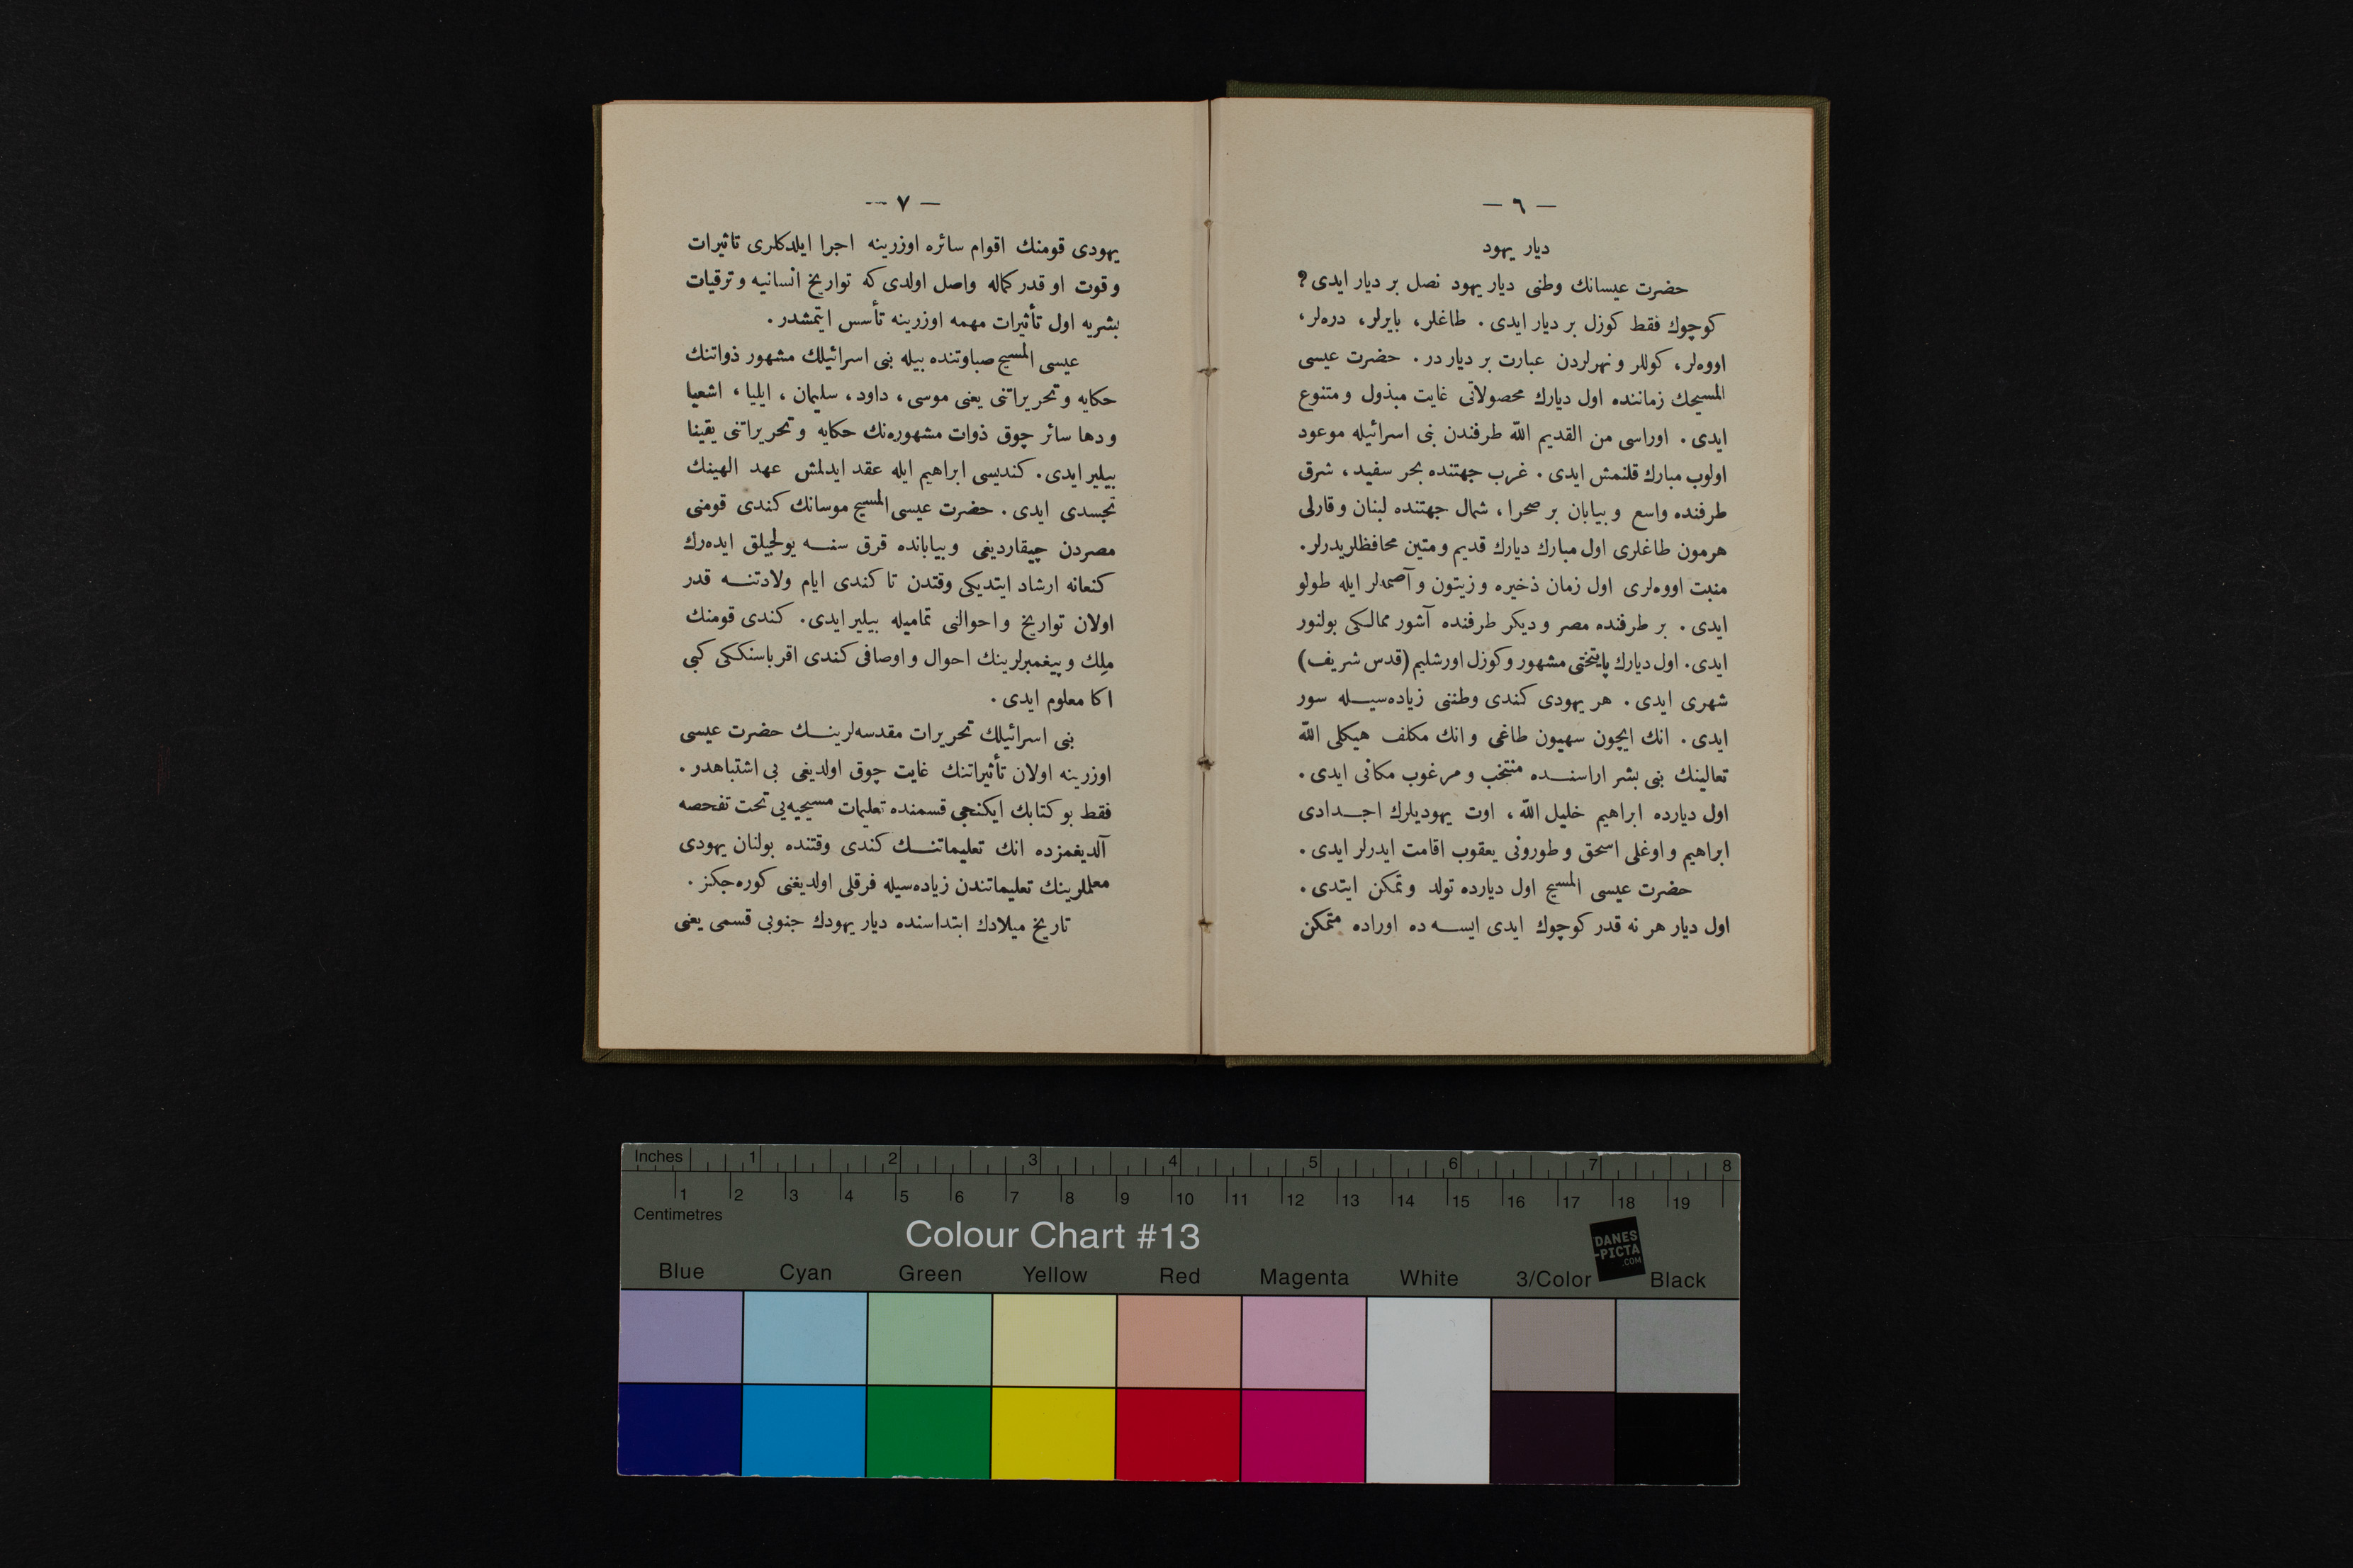 — ٦ —
ديار يهود
حضرت عيسانك وطنى ديار يهود نصل بر ديار ايدى ؟
كوچوك فقط كوزل بر ديار ايدى . طاغلر ، بايرلر ، دره‌لر ،
اووه‌لر ، كوللر و نهرلردن عبارت بر ديار در . حضرت عيسى
المسيحك زماننده اول ديارك محصولاتى غايت مبذول و متنوع
ايدى . اوراسى من القديم الله طرفندن بنى اسرائيله موعود
اولوب مبارك قلنمش ايدى . غرب جهتنده بحر سفيد ، شرق
طرفنده واسع و بيابان بر صحرا ، شمال جهتنده لبنان و قارلى
هرمون طاغلرى اول مبارك ديارك قديم و متين محافظلريدرلر .
منبت اووه‌لرى اول زمان ذخيره و زيتون و آصمه‌لر ايله طولو
ايدى . بر طرفنده مصر و ديكر طرفنده آشور ممالكى بولنور
ايدى . اول ديارك پايتختى مشهور و كوزل اورشليم (قدس شريف)
شهرى ايدى . هر يهودى كندى وطننى زياده‌سيله سور
ايدى . انك ايچون سهيون طاغى و انك مكلف هيكلى الله
تعالينك بنى بشر اراسنده منتخب و مرغوب مكانى ايدى .
اول دياره‌ده ابراهيم خليل الله ، اوت يهوديلرك اجدادى
ابراهيم و اوغلى اسحق و طورونى يعقوب اقامت ايدرلر ايدى .
حضرت عيسى المسيح اول دياردە تولد و تمكن ايتدى .
اول ديار هر نه قدر كوچوك ايدى ايسه ده اوراده متمكن
— ٧ —
يهودى قومنك اقوام سائره اوزرينه اجرا ايلدكلرى تاثيرات
و قوت او قدر كماله واصل اولدى كه تواريخ انسانيه و ترقيات
بشريه اول تأثيرات مهمه اوزرينه تأسس ايتمشدر .
عيسى المسيح صباوتنده بيله بنى اسرائيلك مشهور ذواتنك
حكايه و تحريراتنى يعنى موسى ، داود ، سليمان ، ايليا ، اشعيا
و دها سائر چوق ذوات مشهوره‌نك حكايه و تحريراتنى يقينا
بيلير ايدى . كنديسى ابراهيم ايله عقد ايدلمش عهد الهينك
تجسدى ايدى . حضرت عيسى المسيح موسانك كندى قومنى
مصردن چيقارديغى و بيابانده قرق سنه يولجيلق ايده‌رك
كنعانه ارشاد ايتديكى وقتدن تا كندى ايام ولادتنه قدر
اولان تواريخ و احوالنى تماميله بيلير ايدى . كندى قومنك
مِلِك و پيغمبرلرينك احوال و اوصافى كندى اقرباسنككى كبى
اكا معلوم ايدى .
بنى اسرائيلك تحريرات مقدسه‌لرينك حضرت عيسى
اوزرينه اولان تأثيراتنك غايت چوق اولديغى بى اشتباهدر .
فقط بو كتابك ايكنجى قسمنده تعليمات مسيحيه‌يى تحت تفحصه
آلديغمزده انك تعليماتنك كندى وقتنده بولنان يهودى
معلملرينك تعليماتندن زياده‌سيله فرقلى اولديغنى كوره‌جكز .
تاريخ ميلادك ابتداسنده ديار يهودك جنوبى قسمى يعنى
Inches 1 2 3 4 5 6 7 8
1 2 3 4 5 6 7 8 9 10 11 12 13 14 15 16 17 18 19
Centimetres
Colour Chart #13
DANES
-PICTA
.COM
Blue Cyan Green Yellow Red Magenta White 3/Color Black